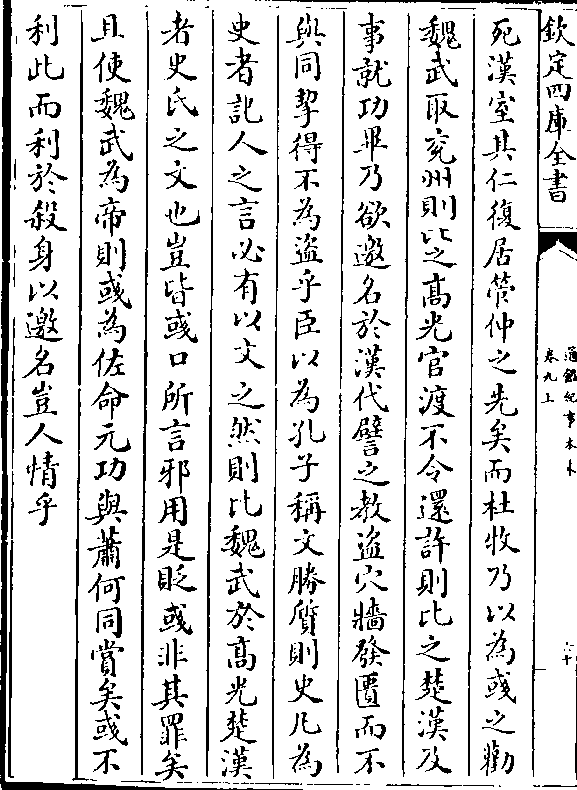 欽定四庫全書
通鑑紀事本末
卷九上
六十
死漢室其仁復居管仲之先矣而杜牧乃以為彧之勸
魏武取兖州則比之髙光官渡不令還許則比之楚漢及
事就功畢乃欲邀名於漢代譬之教盗穴牆發匱而不
與同挈得不為盗乎臣以為孔子稱文勝質則史凡為
史者記人之言必有以文之然則比魏武於髙光楚漢
者史氏之文也豈皆彧口所言邪用是貶彧非其罪矣
且使魏武為帝則彧為佐命元功與蕭何同賞矣彧不
利此而利於殺身以邀名豈人情乎